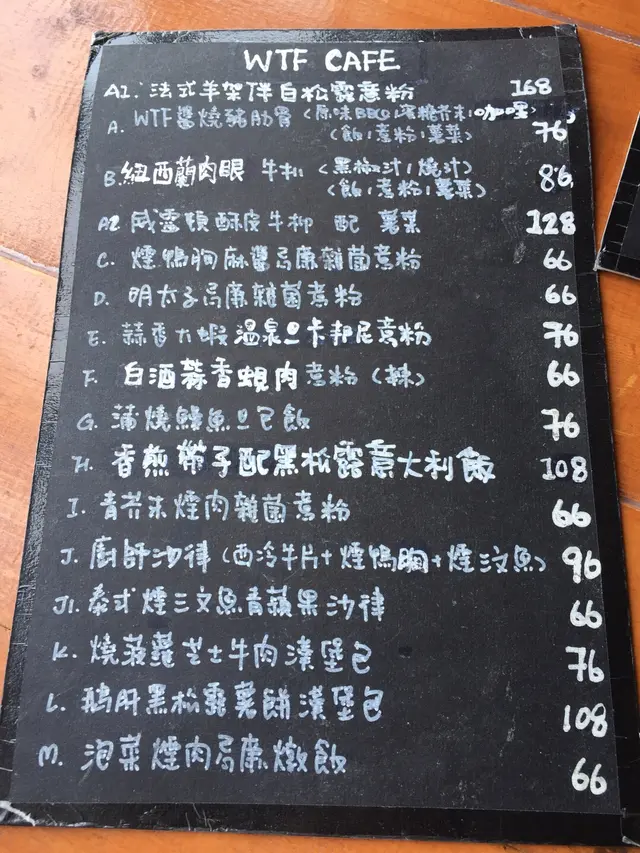 WTF CAFE
A1. 法式羊架伴白松露意粉 168
A. WTF醬燒豬肋骨 (原味BBQ/蜜糖芥末/咖喱)
(飯/意粉/薯菜) 76
B. 紐西蘭肉眼牛扒 (黑椒汁/燒汁)
(飯/意粉/薯菜) 86
A2 威靈頓酥皮牛柳 配 薯菜 128
C. 煙鴨胸麻醬忌廉雜菌意粉 66
D. 明太子忌廉雜菌意粉 66
E. 蒜香大蝦溫泉旦卡邦尼意粉 76
F. 白酒蒜香蜆肉意粉 (辣) 66
G. 蒲燒鰻魚旦包飯 76
H. 香煎帶子配黑松露意大利飯 108
I. 青芥末煙肉雜菌意粉 66
J. 廚師沙律 (西冷牛片+煙鴨胸+煙三文魚) 96
J1. 泰式煙三文魚青蘋果沙律 66
K. 燒菠蘿芝士牛肉漢堡包 76
L. 鵝肝黑松露薯餅漢堡包 108
M. 泡菜煙肉忌廉燉飯 66